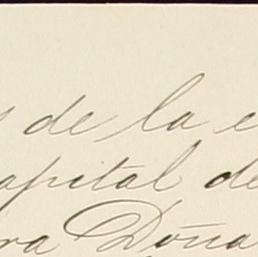 de la
apital de
ra Doña